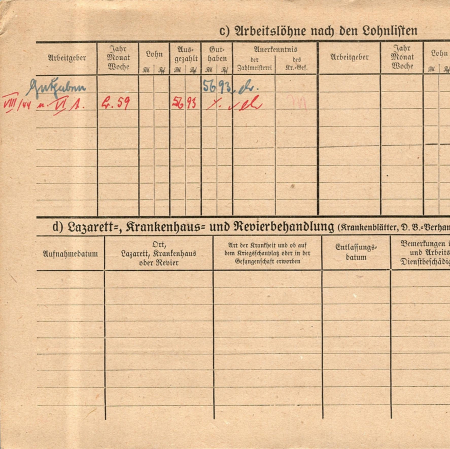 c) Arbeitslöhne nach den Lohnlisten
Arbeitgeber Jahr Monat Woche Lohn RM Rpf Ausgezahlt RM Rpf Guthaben RM Rpf Anerkenntnis der Zahlmeisterei des Kr.-Gef. Arbeitgeber Jahr Monat Woche Lohn RM Rpf
Guthaben 56 93
VIII/44 59 56 93
d) Lazarett-, Krankenhaus- und Revierbehandlung (Krankenblätter, D. B.-Verhan
Aufnahmedatum Ort, Lazarett, Krankenhaus oder Revier Art der Krankheit und ob auf dem Kriegsschauplatz oder in der Gefangenschaft erworben Entlassungsdatum Bemerkungen und Arbeits Dienstbeschädig